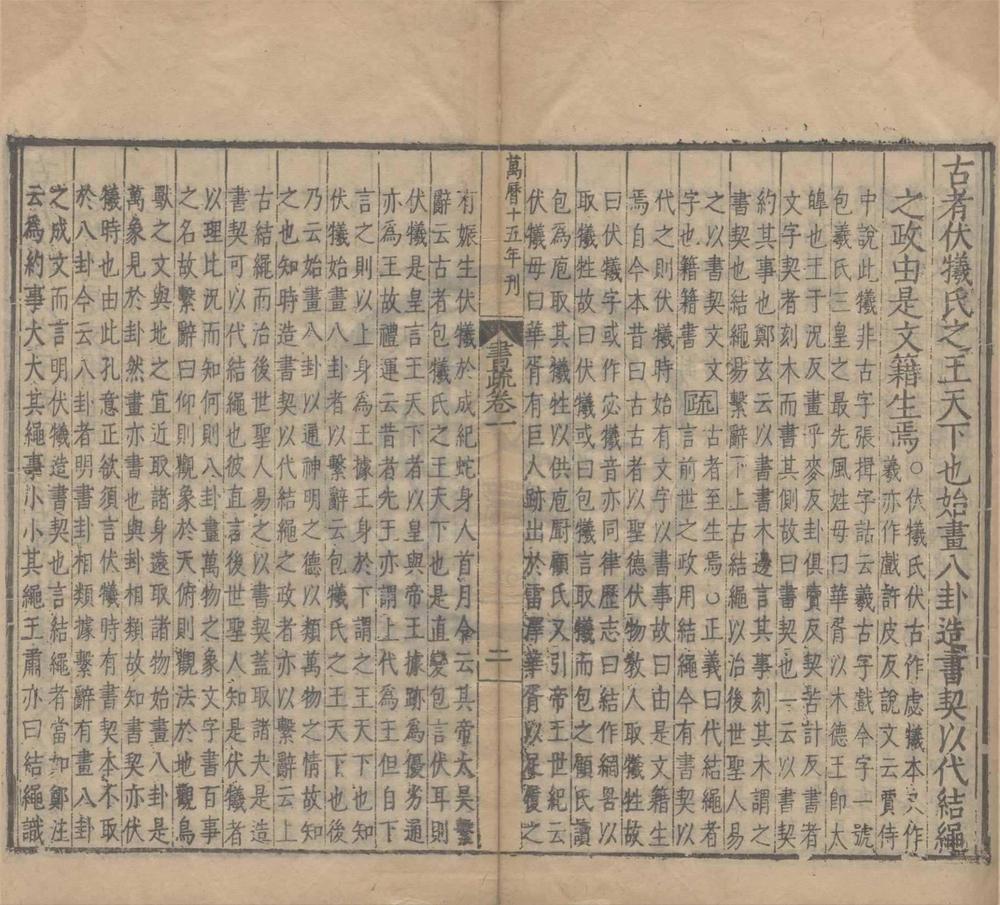 古者伏犧氏之王天下也始畫八卦造書契以代結繩
之政由是文籍生焉○伏犧氏伏古作虙犧本又作
羲亦作戲許皮反說文云賈侍
中說此犧非古字張揖字詁云羲古字戲今字一號
包羲氏三皇之最先風姓母曰華胥以木德王即太
皥也王于況反畫乎麥反卦俱賣反契苦計反書者
文字契者刻木而書其側故曰書契也一云以書契
約其事也鄭玄云以書書木邊言其事刻其木謂之
書契也結繩易繫辭云上古結繩以治後世聖人易
之以書契文文
字也籍籍書
疏古者至生焉○正義曰代結繩者
言前世之政用結繩今有書契以
代之則伏犧時始有文字以書事故曰由是文籍生
焉自今本昔曰古古者以聖德伏物教人取犧牲故
曰伏犧字或作宓犧音亦同律歷志曰結作網罟以
取犧牲故曰伏犧或曰包犧言取犧而包之顧氏讀
包為庖取其犧牲以供庖厨顧氏又引帝王世紀云
伏犧母曰華胥有巨人跡出於雷澤華胥以足履之
萬曆十五年刊
書疏卷一
二
有娠生伏犧於成紀蛇身人首月令云其帝太昊繫
辭云古者包犧氏之王天下也是直變包言伏耳則
伏犧是皇言王天下者以皇與帝王據跡為優劣通
亦為王故禮運云昔者先王亦謂上代為王但自下
言之則以上身為王據王身於下謂之王天下也知
伏犧始畫八卦者以繫辭云包犧氏之王天下也後
乃云始畫八卦以通神明之德以類萬物之情故知
之也知時造書契以代結繩之政者亦以繫辭云上
古結繩而治後世聖人易之以書契蓋取諸夬是造
書契可以代結繩也彼直言後世聖人知是伏犧者
以理比況而知何則八卦畫萬物之象文字書百事
之名故繫辭曰仰則觀象於天俯則觀法於地觀鳥
獸之文與地之宜近取諸身遠取諸物始畫八卦是
萬象見於卦然畫亦書也與卦相類故知書契亦伏
犧時也由此孔意正欲須言伏犧時有書契本不取
於八卦今云八卦者明書卦相類據繫辭有畫八卦
之成文而言明伏犧造書契也言結繩者當如鄭注
云為約事大大其繩事小小其繩王肅亦曰結繩識